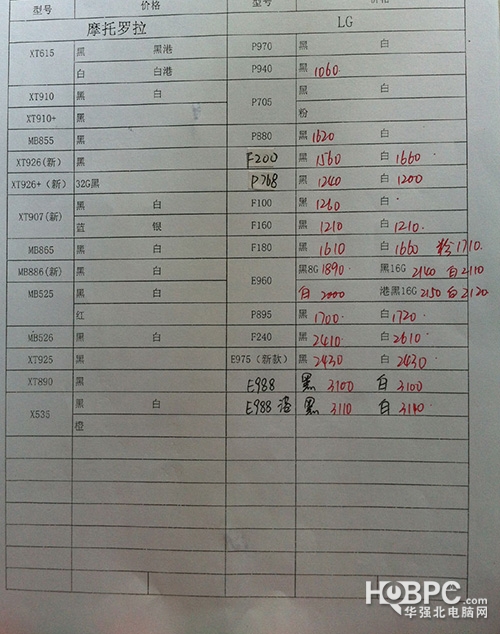 型号 价格 型号 价格
摩托罗拉 LG
XT615 黑 黑港 P970 黑 白
白 白港 P940 黑 1060
XT910 黑 白 P705 黑 白
XT910+ 黑 粉
MB855 黑 P880 黑 1620
XT926(新) 黑 F200 黑 1560 白 1660
XT926+(新) 32G黑 P768 黑 1240 白 1200
XT907(新) 黑 白 F100 黑 1260 白
蓝 银 F160 黑 1210 白 1210
MB865 黑 白 F180 黑 1610 白 1660 粉 1710
MB886(新) 黑 白 E960 黑8G 1890 黑16G 2140 白 2110
MB525 黑 白 白 2000 港黑16G 2150 白 2120
红 P895 黑 1700 白 1720
MB526 黑 白 F240 黑 2410 白 2610
XT925 黑 E975(新款) 黑 2430 白 2430
XT890 黑 E988 黑 3100 白 3100
X535 黑 白 E988 港 黑 3110 白 3110
橙
HQBPC.com
华强北电脑网